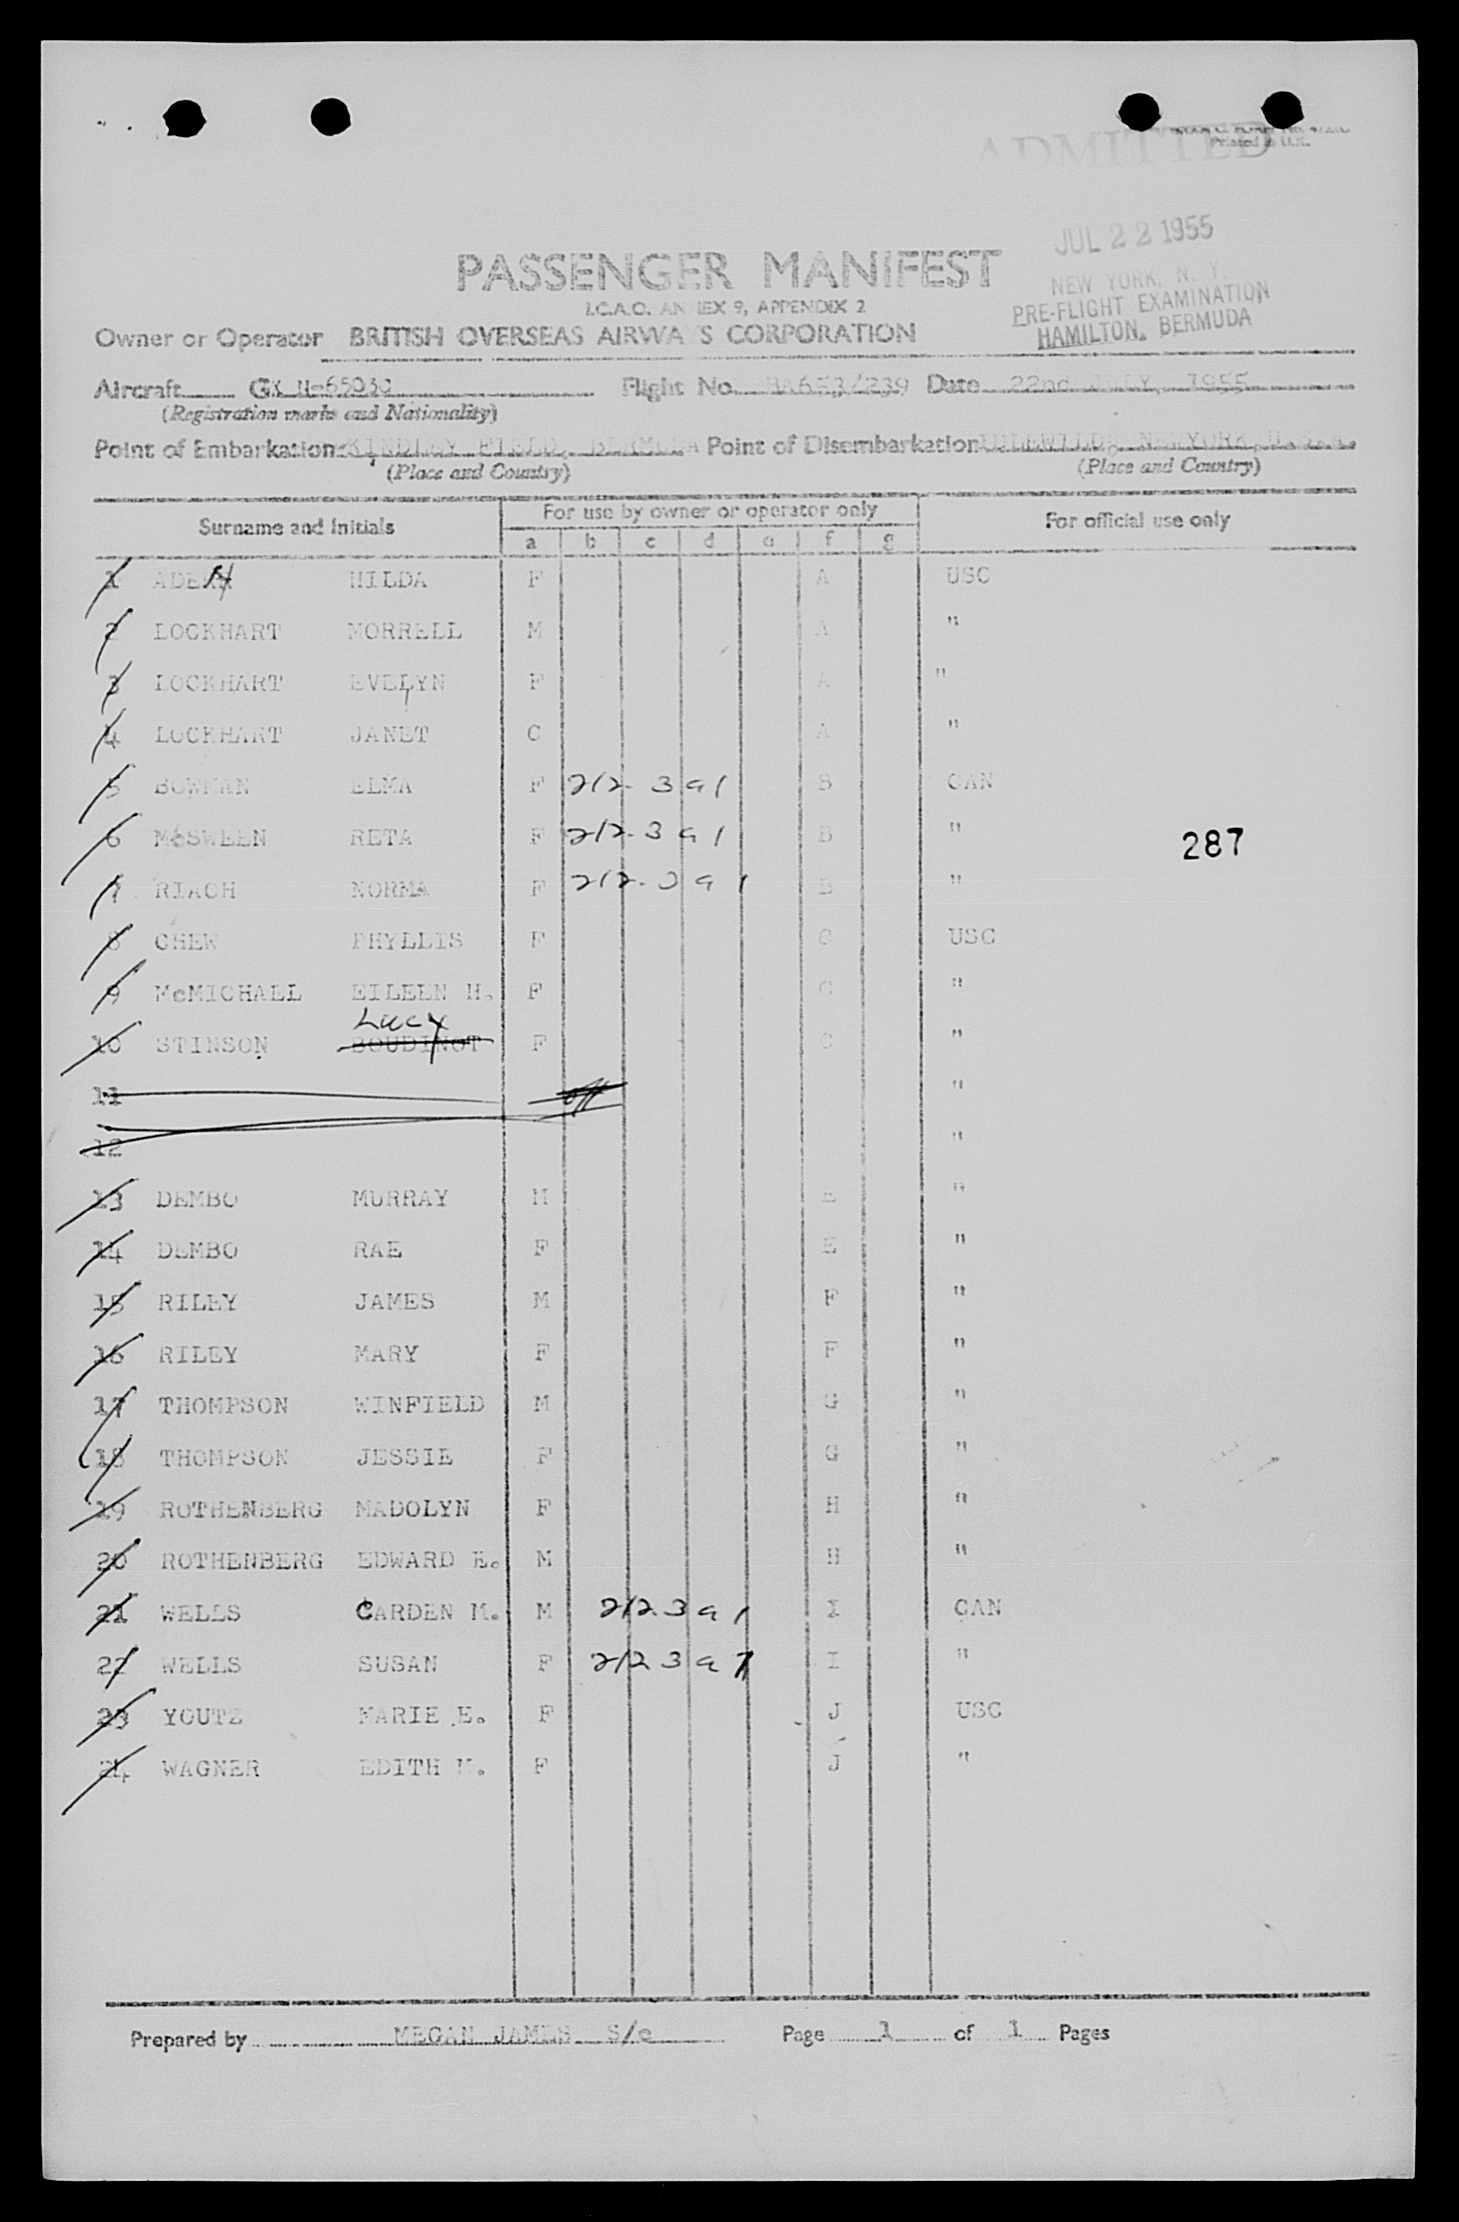 ADMITTED
Printed in U.K.
JUL 22 1955
NEW YORK, N. Y.
PRE-FLIGHT EXAMINATION
HAMILTON, BERMUDA
PASSENGER MANIFEST
I.C.A.O. ANNEX 9, APPENDIX 2
Owner or Operator BRITISH OVERSEAS AIRWAYS CORPORATION
Aircraft Flight No. BA653/239 Date 22nd JULY, 1955
(Registration marks and Nationality)
Point of Embarkation KINDLEY FIELD, BERMUDA Point of Disembarkation IDLEWILD, NEWYORK, U.S.A.
(Place and Country) (Place and Country)
Surname and Initials For use by owner or operator only For official use only
a b c d e f g
1 HILDA F A USC
2 LOCKHART MORRELL M A "
3 LOCKHART EVELYN F A "
4 LOCKHART JANET C A "
5 BOWMAN ELMA F 212-391 B CAN
6 McSWEEN RETA F 212-391 B "
287
7 RIACH NORMA F 212-391 B "
8 CHEW PHYLLIS F C USC
9 McMICHALL EILEEN H. F C "
Lucy
10 STINSON BOUDINOT F C "
11 off "
12 "
13 DEMBO MURRAY M E "
14 DEMBO RAE F E "
15 RILEY JAMES M F "
16 RILEY MARY F F "
17 THOMPSON WINFIELD M G "
18 THOMPSON JESSIE F G "
19 ROTHENBERG MADOLYN F H "
20 ROTHENBERG EDWARD E. M H "
21 WELLS CARDEN M. M 212391 I CAN
22 WELLS SUSAN F 212391 I "
23 YOUTZ MARIE E. F J USC
24 WAGNER EDITH M. F J "
Prepared by MEGAN JAMES S/e Page 1 of 1 Pages